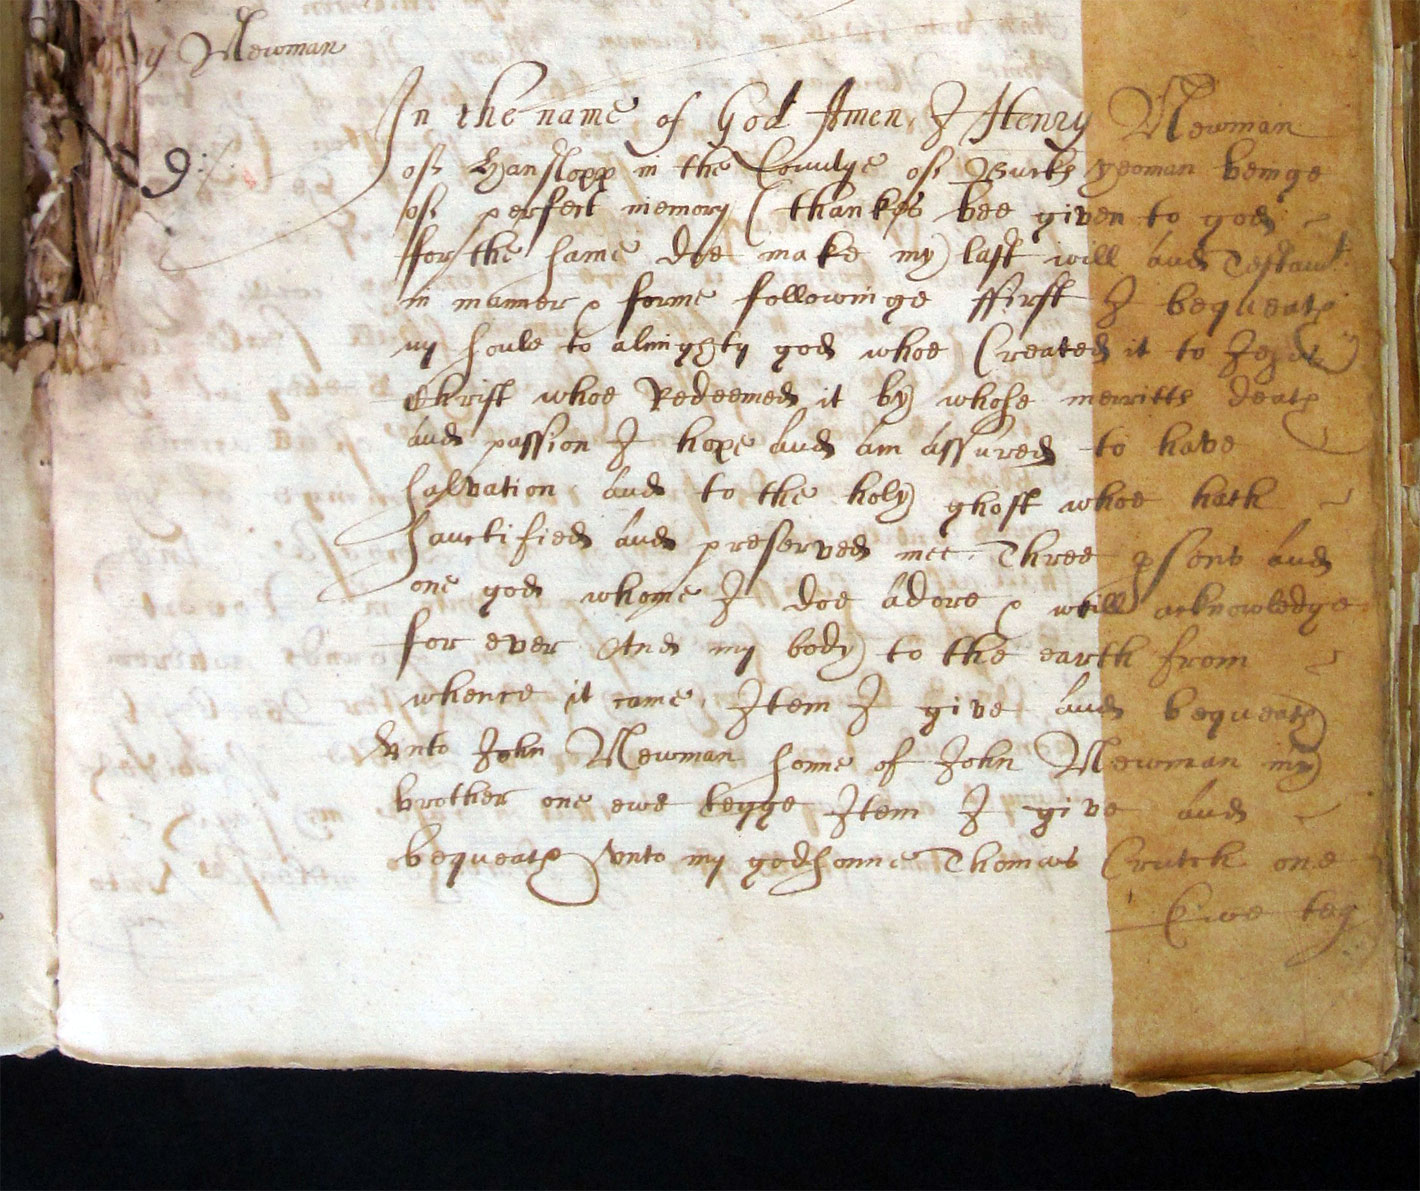 y Newman
9
In the name of God Amen I Henry Newman
of Hanslopp in the Countye of Bucks yeoman beinge
of perfect memory (thankes bee given to god
for the same doe make my last will and Testamt
in manner & forme followinge ffirst I bequeath
my soule to almyghty god whoe Created it to Jesus
Christ whoe Redeemed it by whose merritts death
and passion I hope and am assured to have
salvation and to the holy ghost whoe hath
sanctified and preserved mee Three psons and
one god whome I doe adore & will acknowledge
for ever And my body to the earth from
whence it came, Item I give and bequeath
vnto John Newman sonne of John Newman my
brother one ewe tegge Item I give and
bequeath vnto my godsonne Thomas Crutch one
Ewe teg